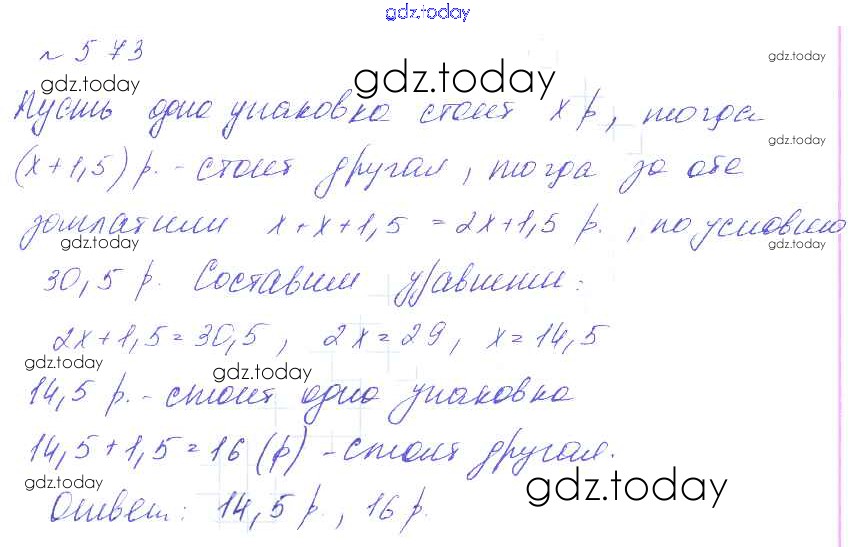 gdz.today
№ 573
gdz.today
gdz.today
gdz.today
Пусть одна упаковка стоит x р., тогда
gdz.today
(x+1,5) р. - стоит другая, тогда за обе
заплатили x+x+1,5 = 2x+1,5 р., по условию
gdz.today
gdz.today
30,5 р. Составим уравнение:
2x+1,5=30,5, 2x=29, x=14,5
gdz.today
gdz.today
14,5 р. - стоит одна упаковка
14,5+1,5=16 (р) - стоит другая.
gdz.today
gdz.today
Ответ: 14,5 р., 16 р.